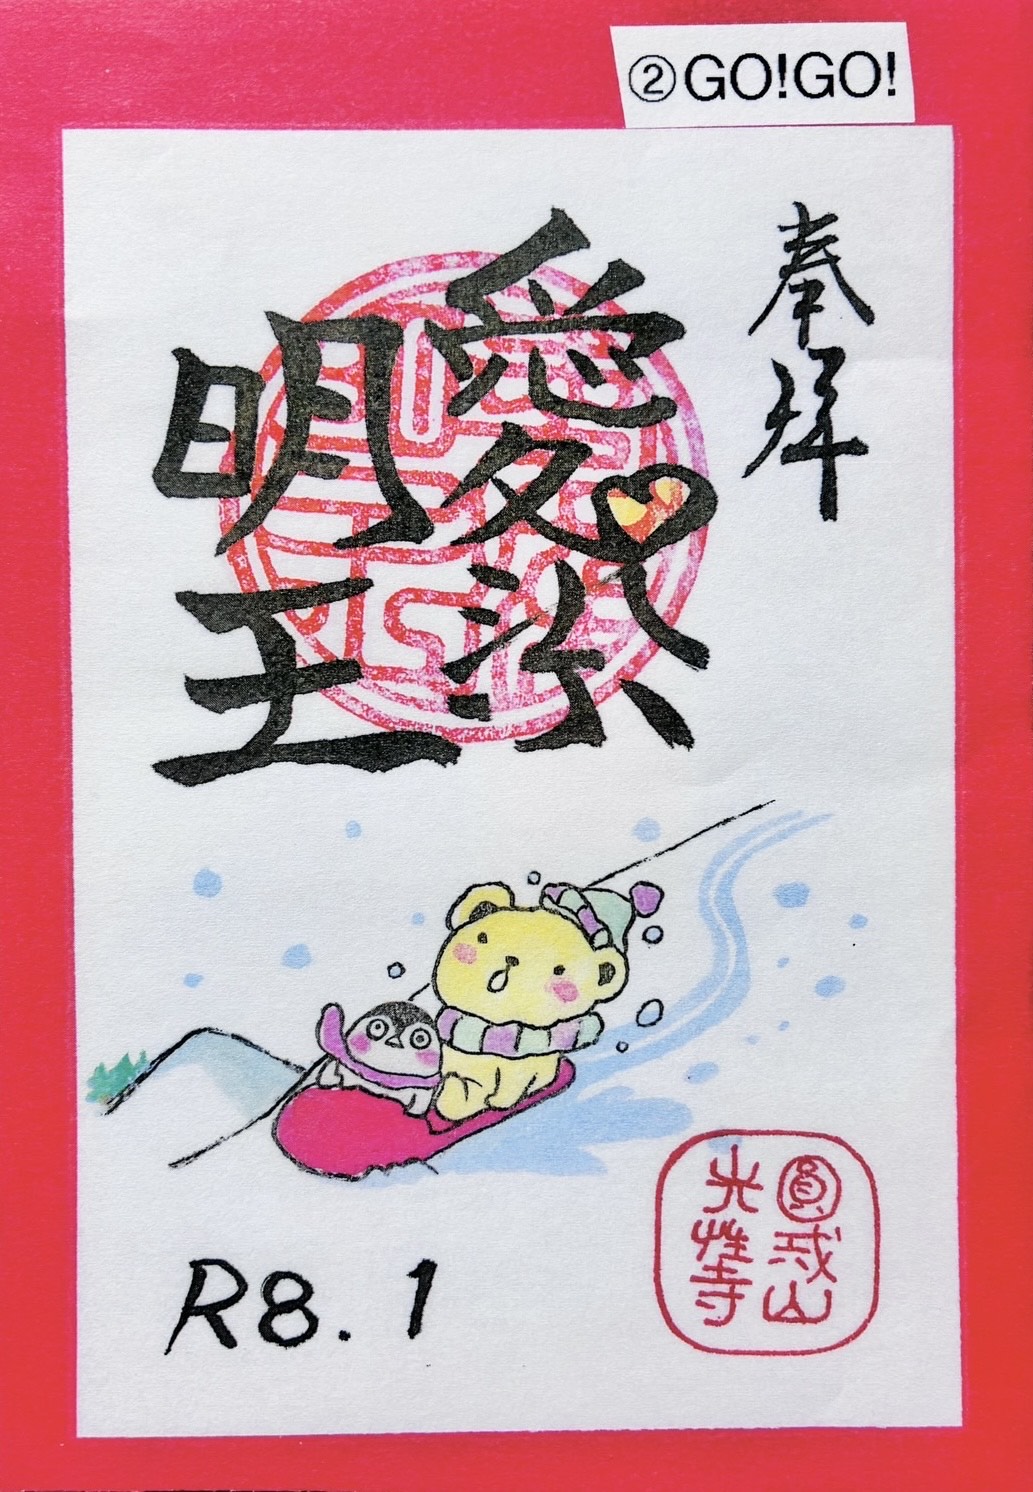 ②GO!GO!
奉拝
愛染
明王
R8.1
圓戒山
光雚寺